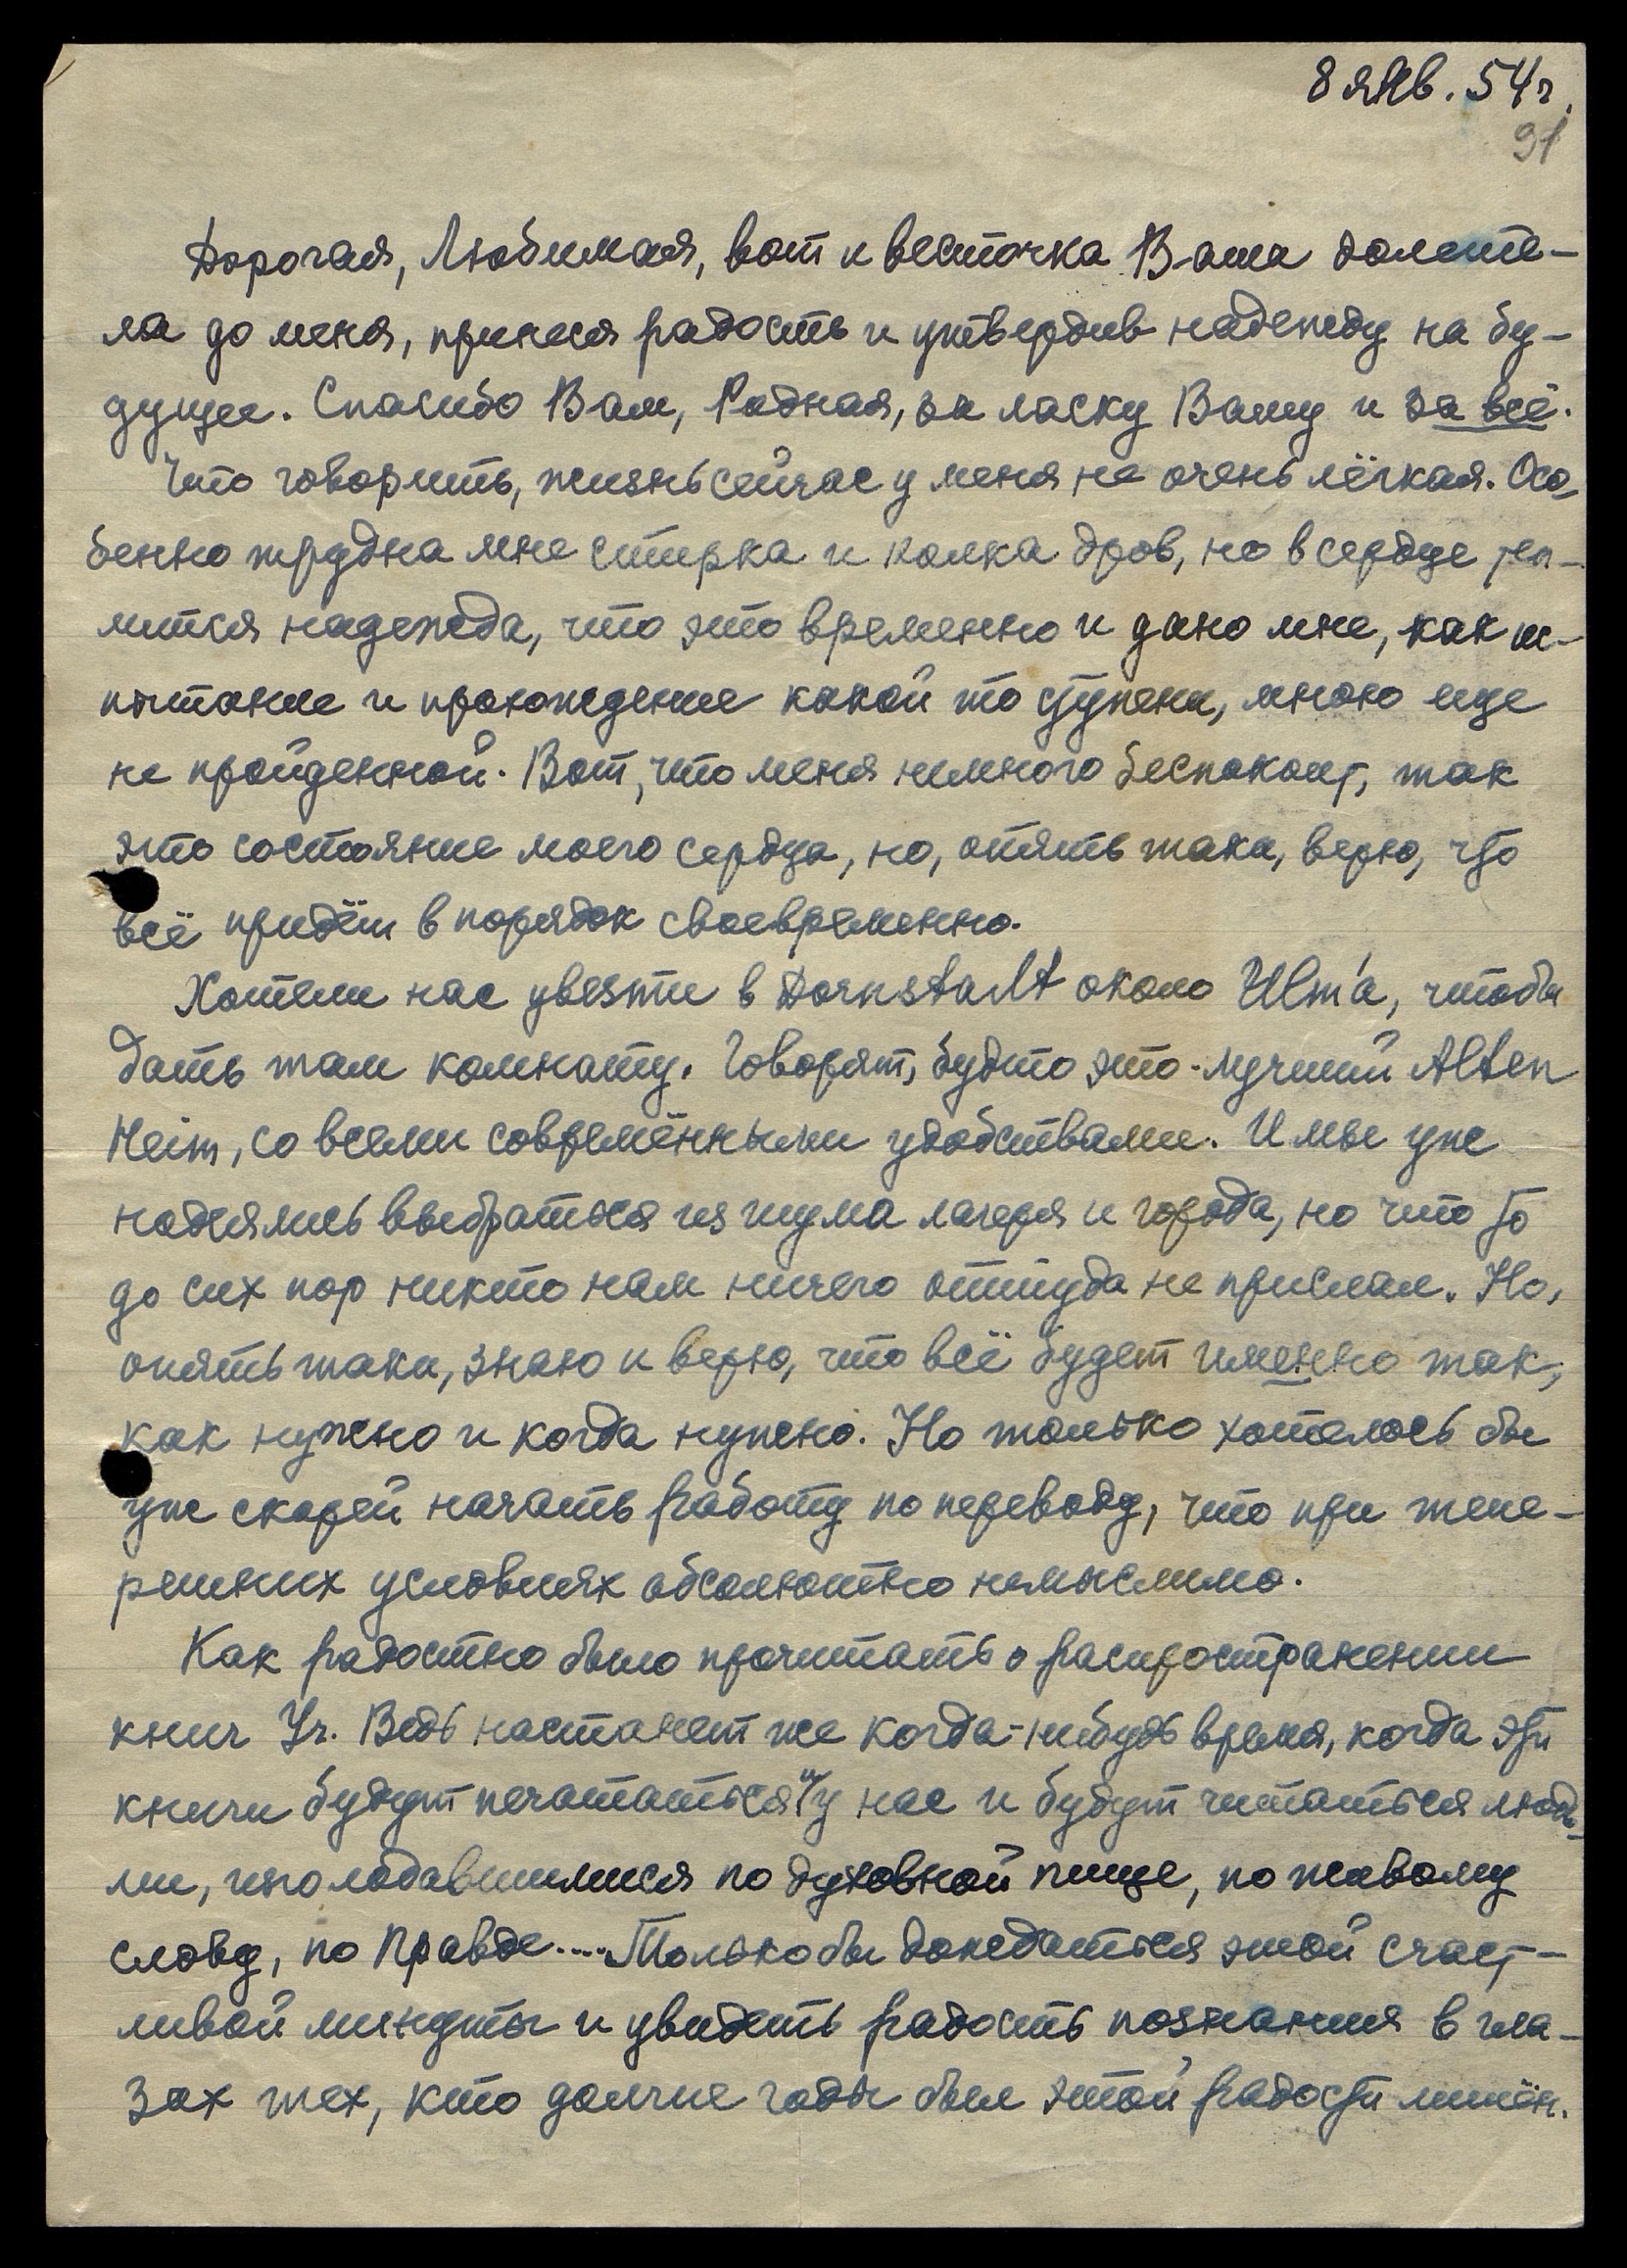 8 янв. 54 г.
91
Дорогая, Любимая, вот и весточка Ваша долете-
ла до меня, принеся радость и утвердив надежду на бу-
дущее. Спасибо Вам, Родная, за ласку Вашу и за всё.
Что говорить, жизнь сейчас у меня не очень лёгкая. Осо-
бенно трудна мне стирка и колка дров, но в сердце теп-
лится надежда, что это временно и дано мне, как ис-
пытание и прохождение какой то ступени, мною еще
не пройденной. Вот, что меня немного беспокоит, так
это состояние моего сердца, но, опять таки, верю, что
всё придёт в порядок своевременно.
Хотели нас увезти в Dornstadt около Ulm'a, чтобы
дать там комнату. Говорят, будто это - лучший Alten
Heim, со всеми современными удобствами. И мы уже
надеялись выбраться из шума лагеря и города, но что то
до сих пор никто нам ничего оттуда не прислал. Но,
опять таки, знаю и верю, что всё будет именно так,
как нужно и когда нужно. Но только хотелось бы
уже скорей начать работу по переводу, что при тепе-
решних условиях абсолютно немыслимо.
Как радостно было прочитать о распространении
книг Уч. Ведь настанет же когда-нибудь время, когда эти
книги будут печататься и у нас и будут читаться людь-
ми, изголодавшимися по духовной пище, по живому
слову, по Правде.... Только бы дождаться этой счаст-
ливой минуты и увидеть радость познания в гла-
зах тех, кто долгие годы был этой радости лишён.